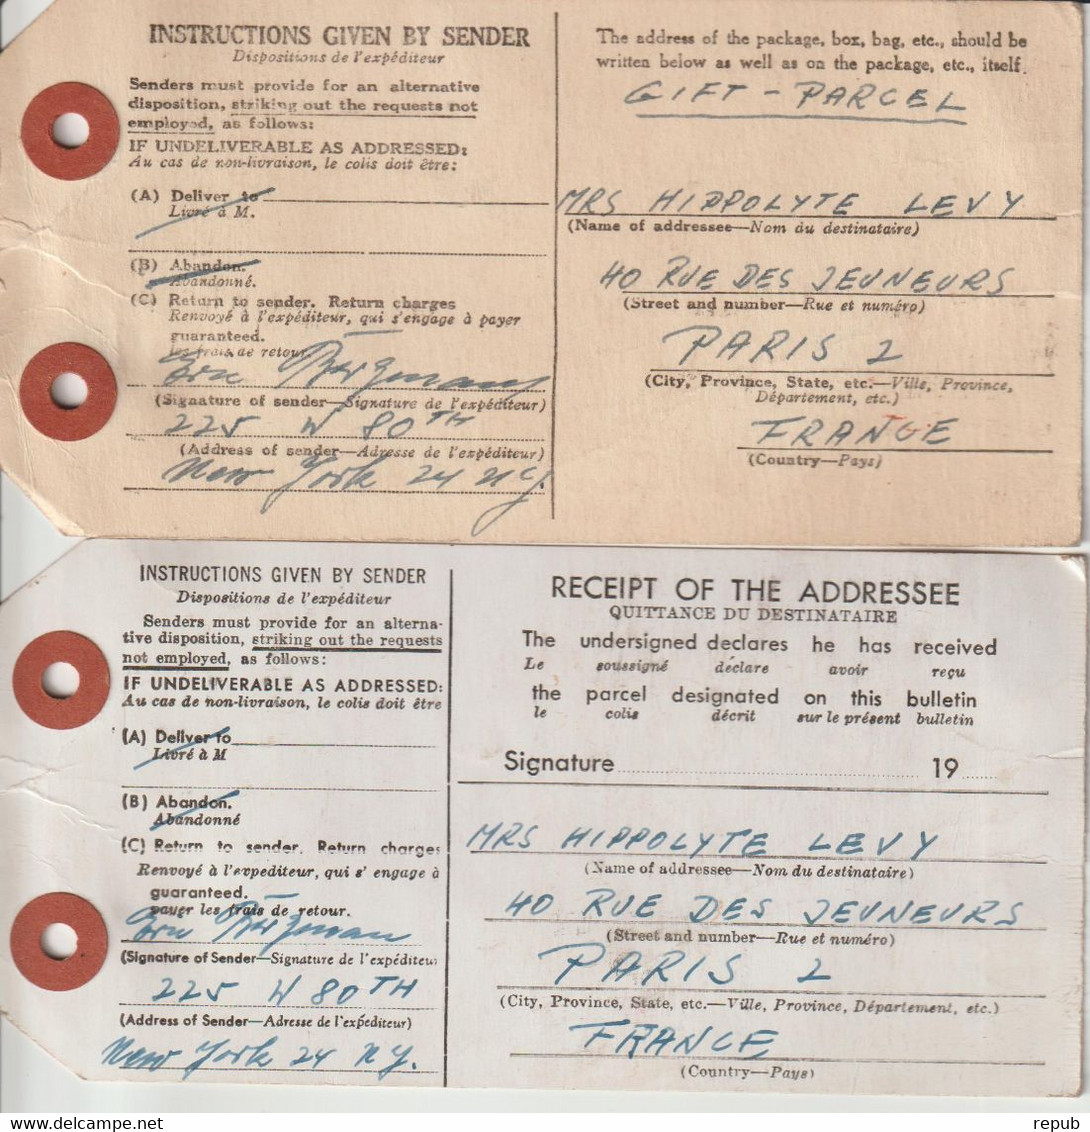 INSTRUCTIONS GIVEN BY SENDER
Dispositions de l'expéditeur
Senders must provide for an alternative
disposition, striking out the requests not
employed, as follows:
IF UNDELIVERABLE AS ADDRESSED:
Au cas de non-livraison, le colis doit être:
(A) Deliver to
Livré à M.
(B) Abandon.
Abandonné.
(C) Return to sender. Return charges
Renvoyé à l'expéditeur, qui s'engage à payer
guaranteed.
les frais de retour.
(Signature of sender—Signature de l'expéditeur)
225 W 80TH
(Address of sender—Adresse de l'expéditeur)
New York 24 N.Y.
The address of the package, box, bag, etc., should be
written below as well as on the package, etc., itself.
GIFT - PARCEL
MRS HIPPOLYTE LEVY
(Name of addressee—Nom du destinataire)
40 RUE DES JEUNEURS
(Street and number—Rue et numéro)
PARIS 2
(City, Province, State, etc.—Ville, Province,
Département, etc.)
FRANCE
(Country—Pays)
INSTRUCTIONS GIVEN BY SENDER
Dispositions de l'expéditeur
Senders must provide for an alterna-
tive disposition, striking out the requests
not employed, as follows:
IF UNDELIVERABLE AS ADDRESSED:
Au cas de non-livraison, le colis doit être
(A) Deliver to
Livré à M
(B) Abandon.
Abandonné
(C) Return to sender. Return charges
Renvoyé à l'expediteur, qui s' engage à
guaranteed.
payer les frais de retour.
(Signature of Sender—Signature de l'expéditeur
225 W 80TH
(Address of Sender—Adresse de l'expéditeur)
New York 24 N.Y.
RECEIPT OF THE ADDRESSEE
QUITTANCE DU DESTINATAIRE
The undersigned declares he has received
Le soussigné déclare avoir reçu
the parcel designated on this bulletin
le colis décrit sur le présent bulletin
Signature 19
MRS HIPPOLYTE LEVY
(Name of addressee—Nom du destinataire)
40 RUE DES JEUNEURS
(Street and number—Rue et numéro)
PARIS 2
(City, Province, State, etc.—Ville, Province, Département, etc.)
FRANCE
(Country—Pays)
delcampe.net
repub